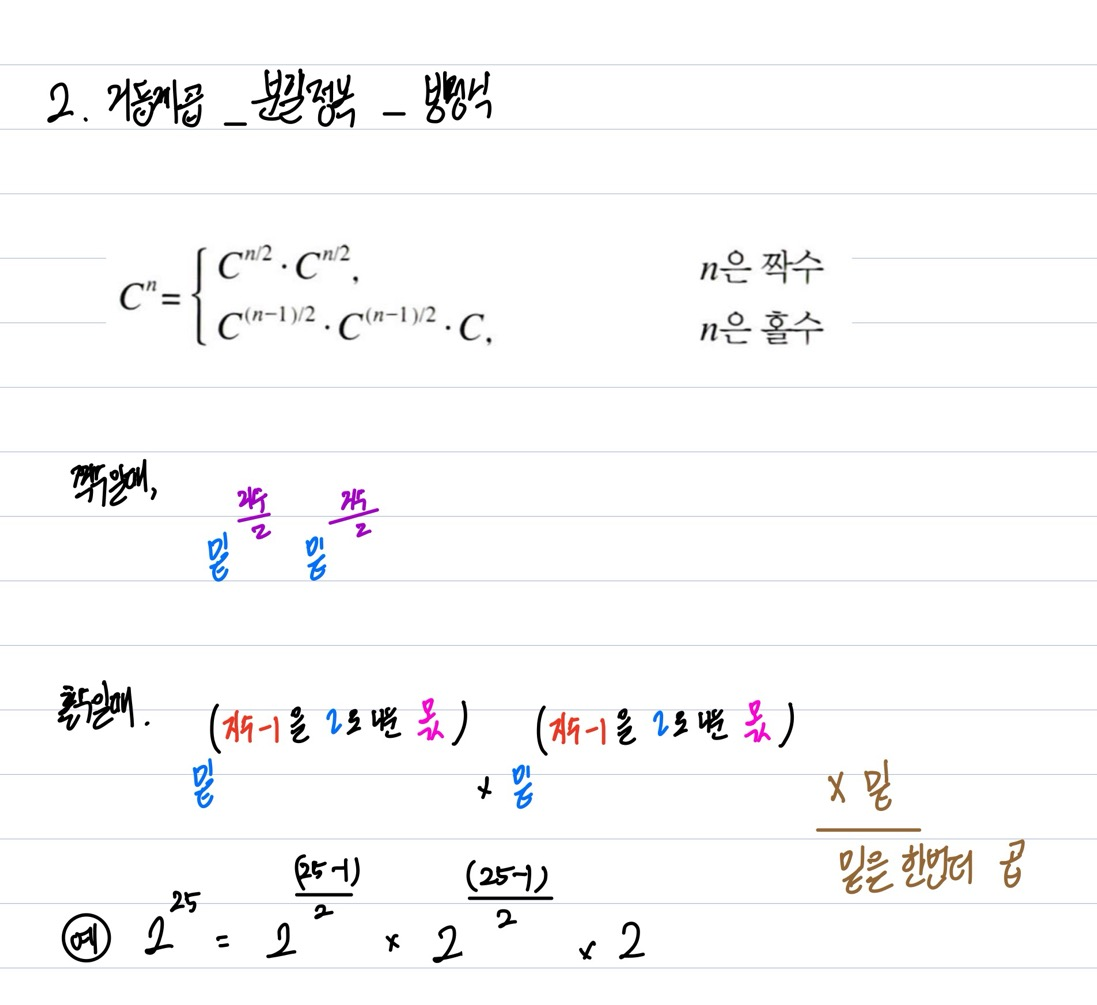 2. 거듭제곱 _ 분할정복 _ 방정식
C^n = { C^{n/2} · C^{n/2}, n은 짝수
C^{(n-1)/2} · C^{(n-1)/2} · C, n은 홀수
짝수일때,
밑^{지수/2} 밑^{지수/2}
홀수일때.
밑^{(지수-1을 2로 나눈 몫)} × 밑^{(지수-1을 2로 나눈 몫)} × 밑
밑을 한번더 곱
예 2^{25} = 2^{(25-1)/2} × 2^{(25-1)/2} × 2